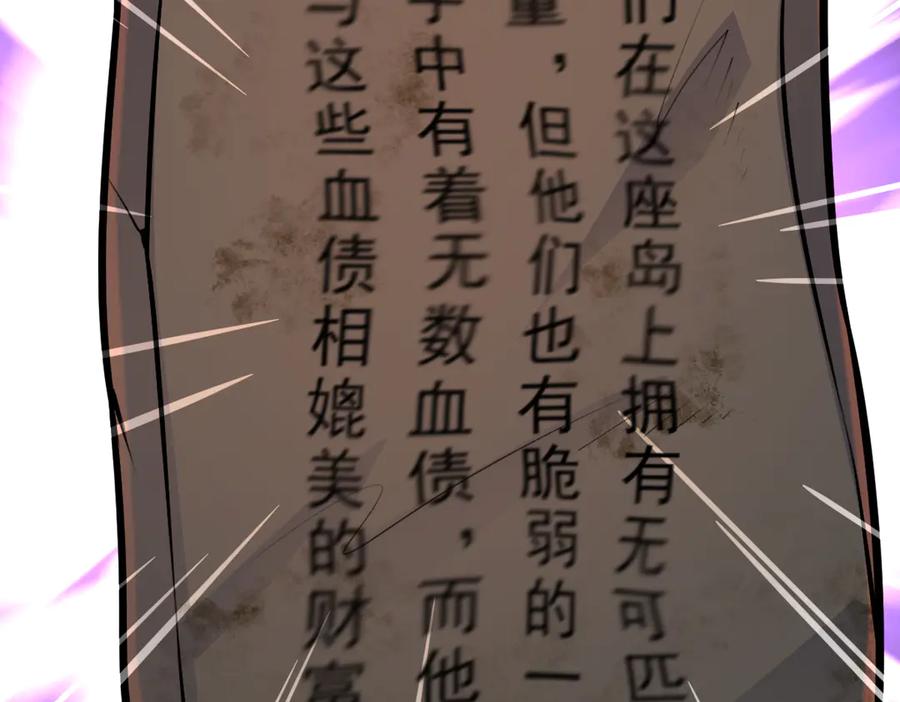 们在这座岛上拥有无可匹
量，但他们也有脆弱的一
手中有着无数血债，而他
与这些血债相媲美的财富